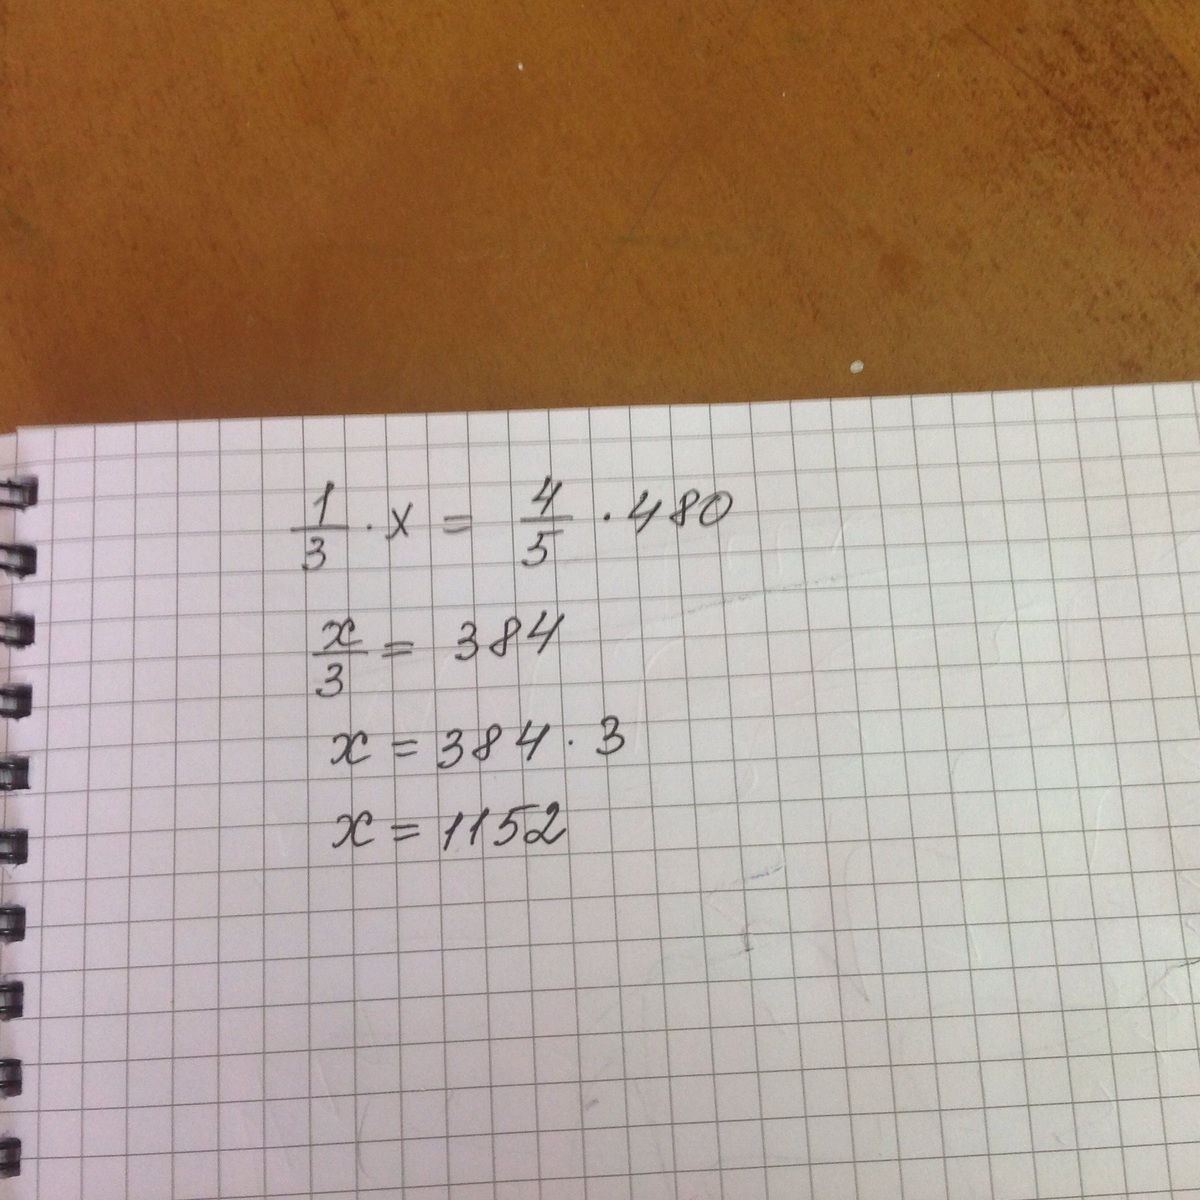 1/3 · x = 4/5 · 480
x/3 = 384
x = 384 · 3
x = 1152